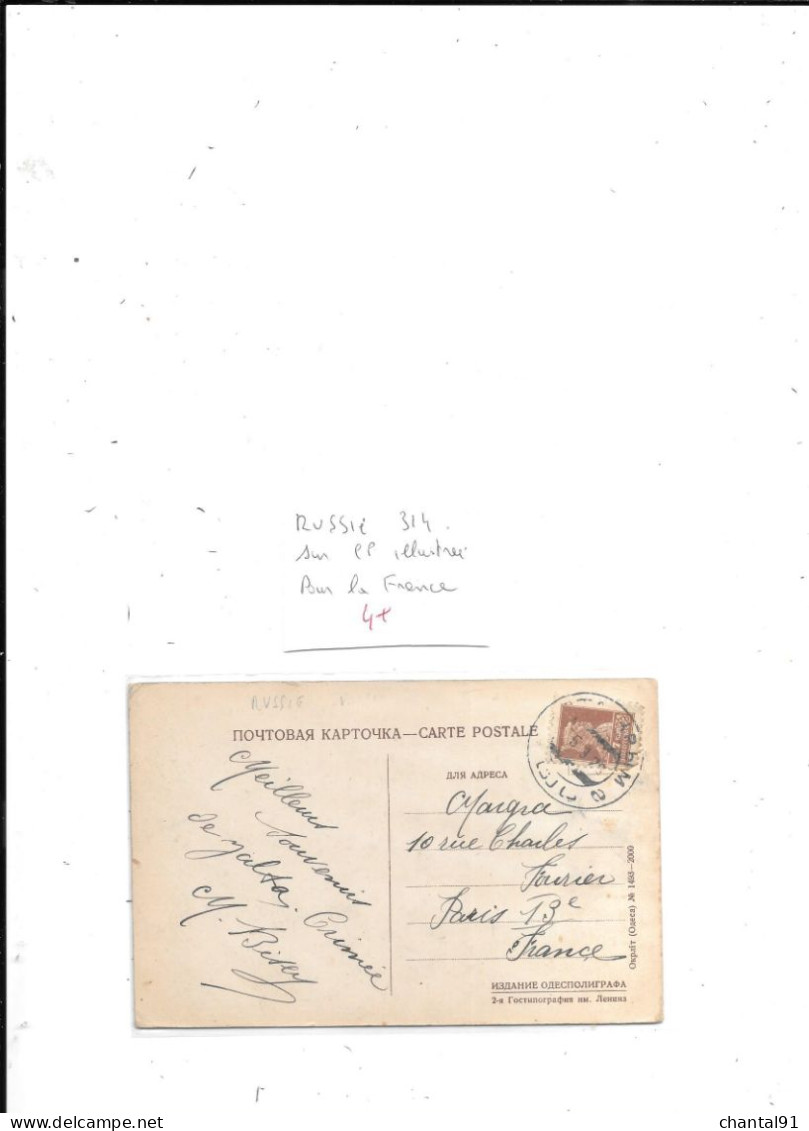 RUSSIE 314.
sur CP illustrée
Pour la France
4+
RUSSIE
ПОЧТОВАЯ КАРТОЧКА—CARTE POSTALE
КРЫМ
ДЛЯ АДРЕСА
Meilleurs
souvenirs
de Yalta. Crimée
M.
10 rue Charles
Fourier
Paris 13e
France
Окрліт (Одеса) № 1488—2000
ИЗДАНИЕ ОДЕСПОЛИГРАФА
2-я Гостипография им. Ленина
chantal91